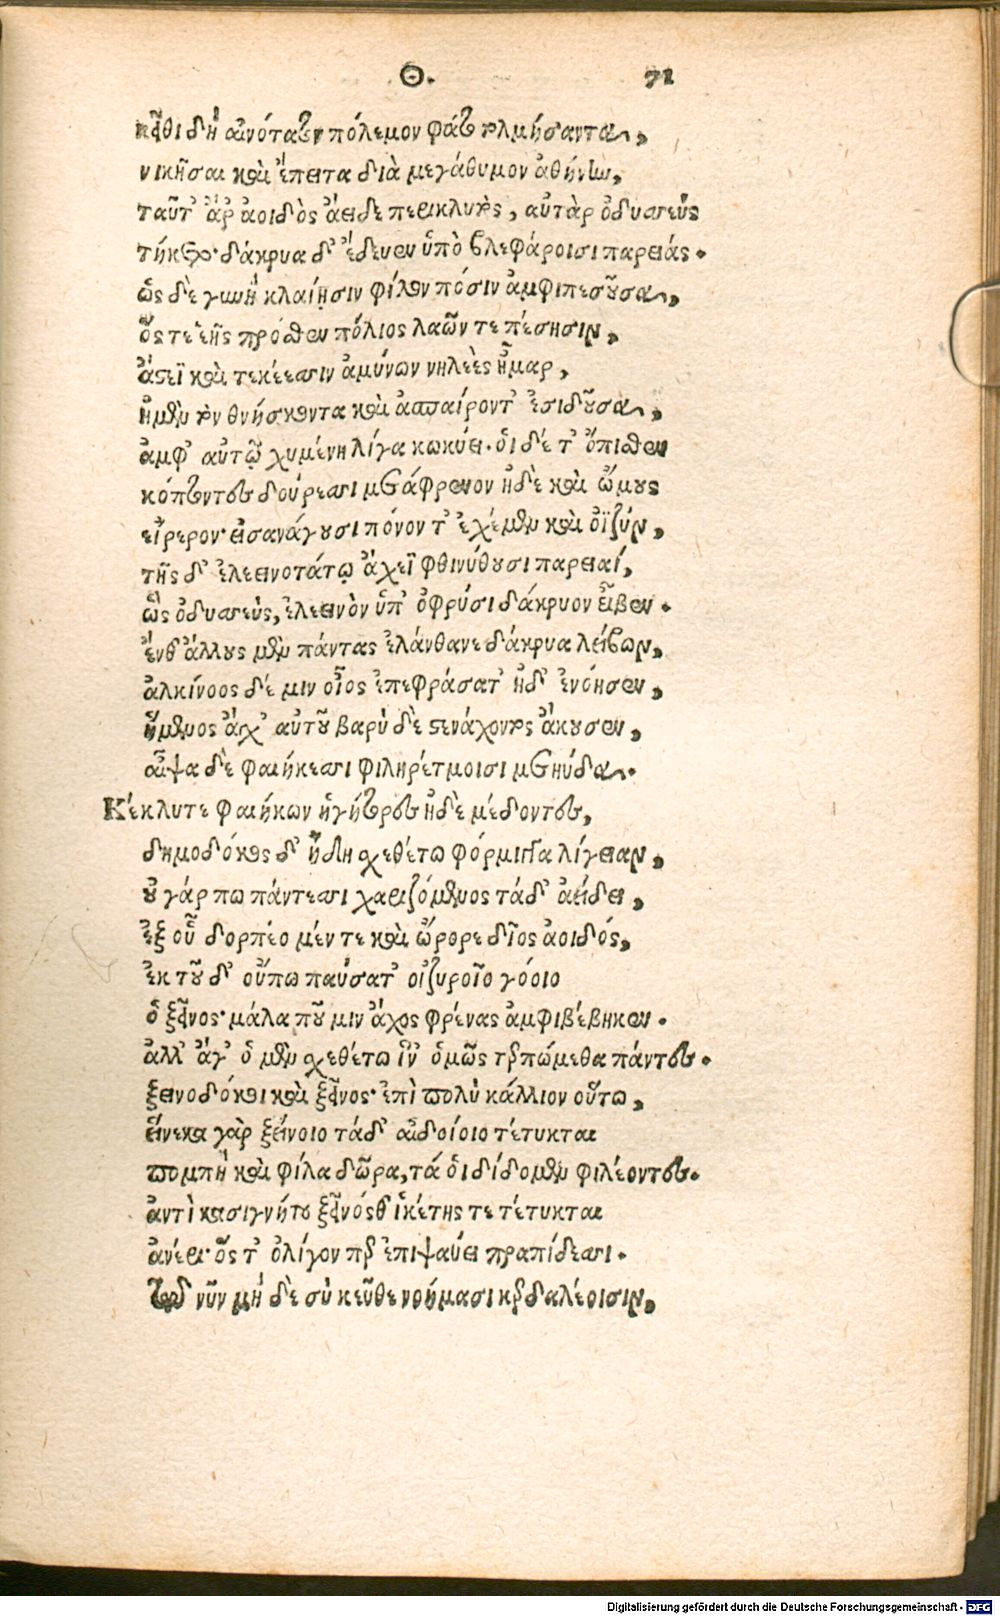 Θ. 71
κεῖθι δὴ αἰνότατον πόλεμον φάτο τολμήσαντα,
νικῆσαι καὶ ἔπειτα διὰ μεγάθυμον ἀθήνην,
ταῦτ' ἄρ ἀοιδὸς ἄειδε περικλυτός, αὐτὰρ ὀδυσσεὺς
τήκετο· δάκρυα δ' ἔδευεν ὑπὸ βλεφάροισι παρειάς.
ὡς δὲ γυνὴ κλαίῃσιν φίλον πόσιν ἀμφιπεσοῦσα,
ὅς τε ἑῆς πρόσθεν πόλιος λαῶν τε πέσησιν,
ἄστεϊ καὶ τεκέεσσιν ἀμύνων νηλεὲς ἦμαρ,
ἡ μὲν τὸν θνήσκοντα καὶ ἀσπαίροντ' ἐσιδοῦσα,
ἀμφ' αὐτῷ χυμένη λίγα κωκύει. οἱ δέ τ' ὄπισθεν
κόπτοντες δούρεσσι μετάφρενον ἠδὲ καὶ ὤμους
εἴρερον· εἰσανάγουσι πόνον τ' ἐχέμεν καὶ ὀϊζύν,
τῆς δ' ἐλεεινοτάτῳ ἄχεϊ φθινύθουσι παρειαί,
ὣς ὀδυσσεὺς, ἐλεεινὸν ὑπ' ὀφρύσι δάκρυον εἶβεν.
ἔνθ' ἄλλους μὲν πάντας ἐλάνθανε δάκρυα λείβων,
ἀλκίνοος δέ μιν οἶος ἐπεφράσατ' ἠδ' ἐνόησεν,
ἥμενος ἄγχ' αὐτοῦ βαρὺ δὲ στενάχοντος ἄκουσεν,
αἶψα δὲ φαιήκεσσι φιληρέτμοισι μετηύδα.
Κέκλυτε φαιήκων ἡγήτορες ἠδὲ μέδοντες,
δημοδόκος δ' ἤδη σχεθέτω φόρμιγγα λίγειαν,
οὐ γάρ πω πάντεσσι χαριζόμενος τάδ' ἀείδει,
ἐξ οὗ δορπέομέν τε καὶ ὤρορε δῖος ἀοιδός,
ἐκ τοῦ δ' οὔπω παύσατ' οἰζυροῖο γόοιο
ὁ ξεῖνος· μάλα που μιν ἄχος φρένας ἀμφιβέβηκεν.
ἀλλ' ἄγ' ὁ μὲν σχεθέτω ἵν' ὁμῶς τερπώμεθα πάντες.
ξεινοδόκοι καὶ ξεῖνος· ἐπὶ πολὺ κάλλιον οὕτω,
εἵνεκα γὰρ ξείνοιο τάδ' αἰδοίοιο τέτυκται
πομπὴ καὶ φίλα δῶρα, τά οἱ δίδομεν φιλέοντες.
ἀντὶ κασιγνήτου ξεῖνός θ' ἱκέτης τε τέτυκται
ἀνέρι· ὅς τ' ὀλίγον περ ἐπιψαύει πραπίδεσσι.
τῷ νῦν μὴ δὲ σὺ κεῦθε νοήμασι κερδαλέοισιν,
Digitalisierung gefördert durch die Deutsche Forschungsgemeinschaft - DFG